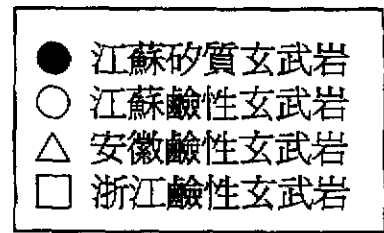 江蘇矽質玄武岩
江蘇鹼性玄武岩
安徽鹼性玄武岩
浙江鹼性玄武岩